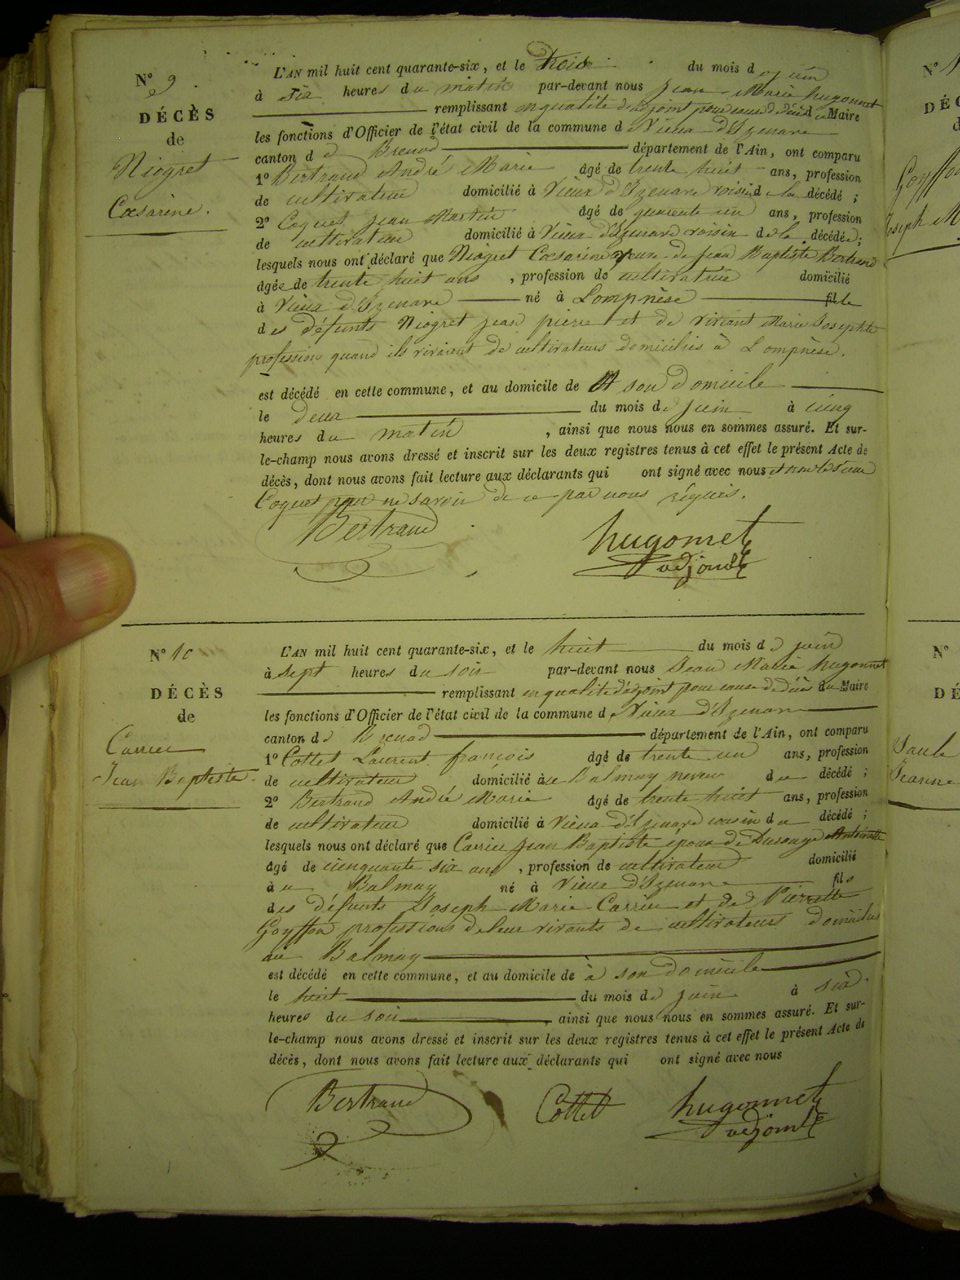 N° 9
DÉCÈS
de
Niogret
Cœsarine.
L'AN mil huit cent quarante-six, et le trois du mois de juin
à six heures du matin par-devant nous Jean Marie hugonnet
remplissant en qualité d'adjoint pour cause de décès du Maire
les fonctions d'Officier de l'état civil de la commune de Vieux d'Izenave
canton de Brenod département de l'Ain, ont comparu
1° Bertrand André Marie âgé de trente huit ans, profession
de cultivateur domicilié à Vieux d'Izenave voisin de la décédé ;
2° Coquet Jean Martin âgé de quarante un ans, profession
de cultivateur domicilié à Vieux d'Izenave voisin de la décédée ;
lesquels nous ont déclaré que Niogret Cœsarine veuve de Jean Baptiste Bertrand
âgée de trente huit ans , profession de cultivatrice domicilié
à Vieux d'Izenave né à Lompnèse fille
des défunts Niogret Jean pierre et de Vivient Marie Josephte
profession quand ils vivaient de cultivateurs domiciliés à Lompnèse.
est décédé en cette commune, et au domicile de son Domicile
le deux du mois de juin à cinq
heures du matin , ainsi que nous nous en sommes assuré. Et sur-
le-champ nous avons dressé et inscrit sur les deux registres tenus à cet effet le présent Acte de
décès, dont nous avons fait lecture aux déclarants qui ont signé avec nous et non le sieur
Coquet pour ne savoir de ce par nous réquis.
Bertrand hugonnet
adjoint
N° 10
DÉCÈS
de
Carrier
Jean Baptiste.
L'AN mil huit cent quarante-six, et le huit du mois de juin
à sept heures du soir par-devant nous Jean Marie hugonnet
remplissant en qualité d'adjoint pour cause de décès du Maire
les fonctions d'Officier de l'état civil de la commune de Vieux d'Izenave
canton de Brenod département de l'Ain, ont comparu
1° Cottet Laurent françois âgé de trente un ans, profession
de cultivateur domicilié à au Balmay neveu du décédé ;
2° Bertrand André Marie âgé de trente huit ans, profession
de cultivateur domicilié à Vieux d'Izenave cousin du décédé ;
lesquels nous ont déclaré que Carrier Jean Baptiste époux de Antoinette
âgé de cinquante six ans , profession de cultivateur domicilié
à au Balmay né à Vieux d'Izenave fils
des défunts Joseph Marie Carrier et de Pierrette
Goyffon professions de leur vivants de cultivateurs domiciliés
au Balmay
est décédé en cette commune, et au domicile de à son domicile
le huit du mois de juin à six
heures du soir ainsi que nous nous en sommes assuré. Et sur-
le-champ nous avons dressé et inscrit sur les deux registres tenus à cet effet le présent Acte de
décès, dont nous avons fait lecture aux déclarants qui ont signé avec nous
Bertrand Cottet hugonnet
adjoint